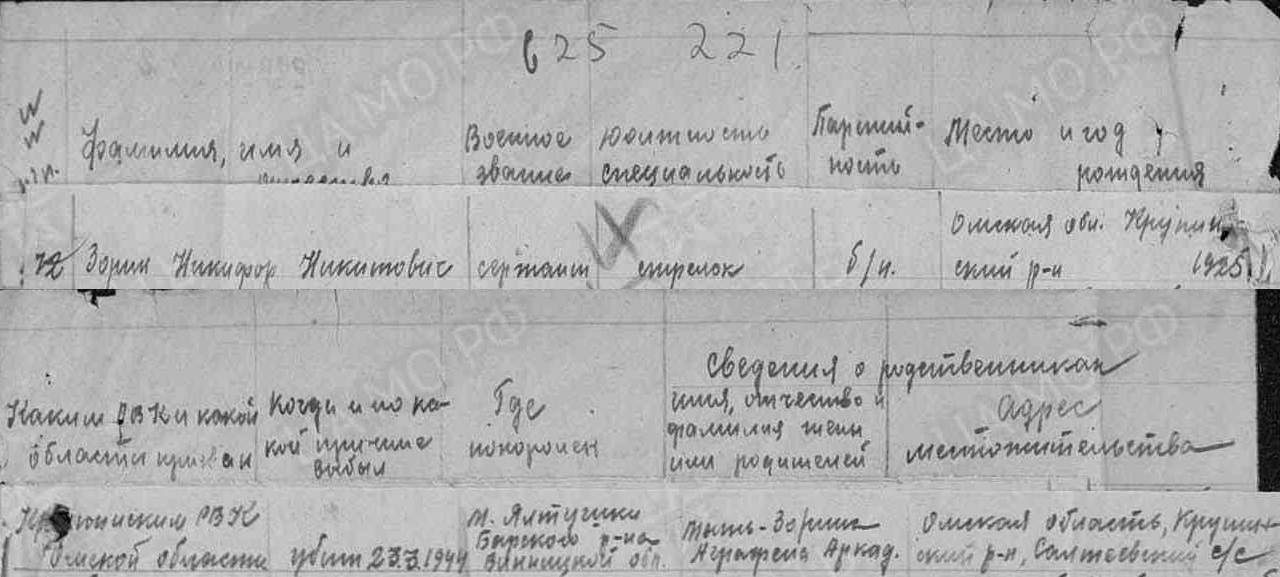 625 221.
№ № п.п. Фамилия, имя и отчества Военное звание Должность специальность Партий-ность Место и год рождения
72 Зорин Никифор Никитович сержант стрелок б/п. Омская обл. Крупин-ский р-н 1925
Сведения о родственниках
Каким РВК и какой области призван Когда и по ка-кой причине выбыл Где похоронен имя, отчество и фамилия жены или родителей Адрес местожительства
РВК Омской области убит 23.3.1944 м. Ялтушки Барского р-на Винницкой обл. мать-Зорина Аграфена Аркад. Омская область, Крупин-ский р-н, Салтаевский с/с